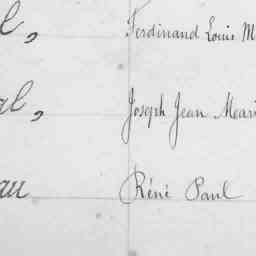 l, Ferdinand Louis M
al, Joseph Jean Mari
au Réné Paul